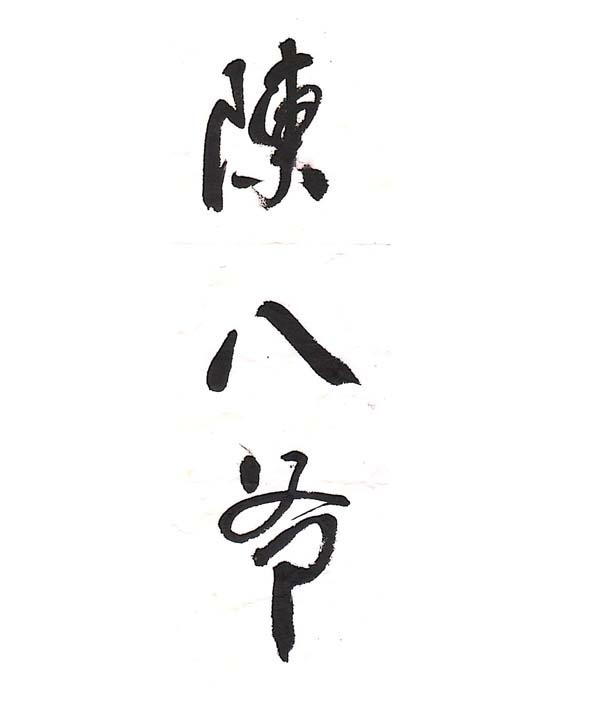 陳八爷